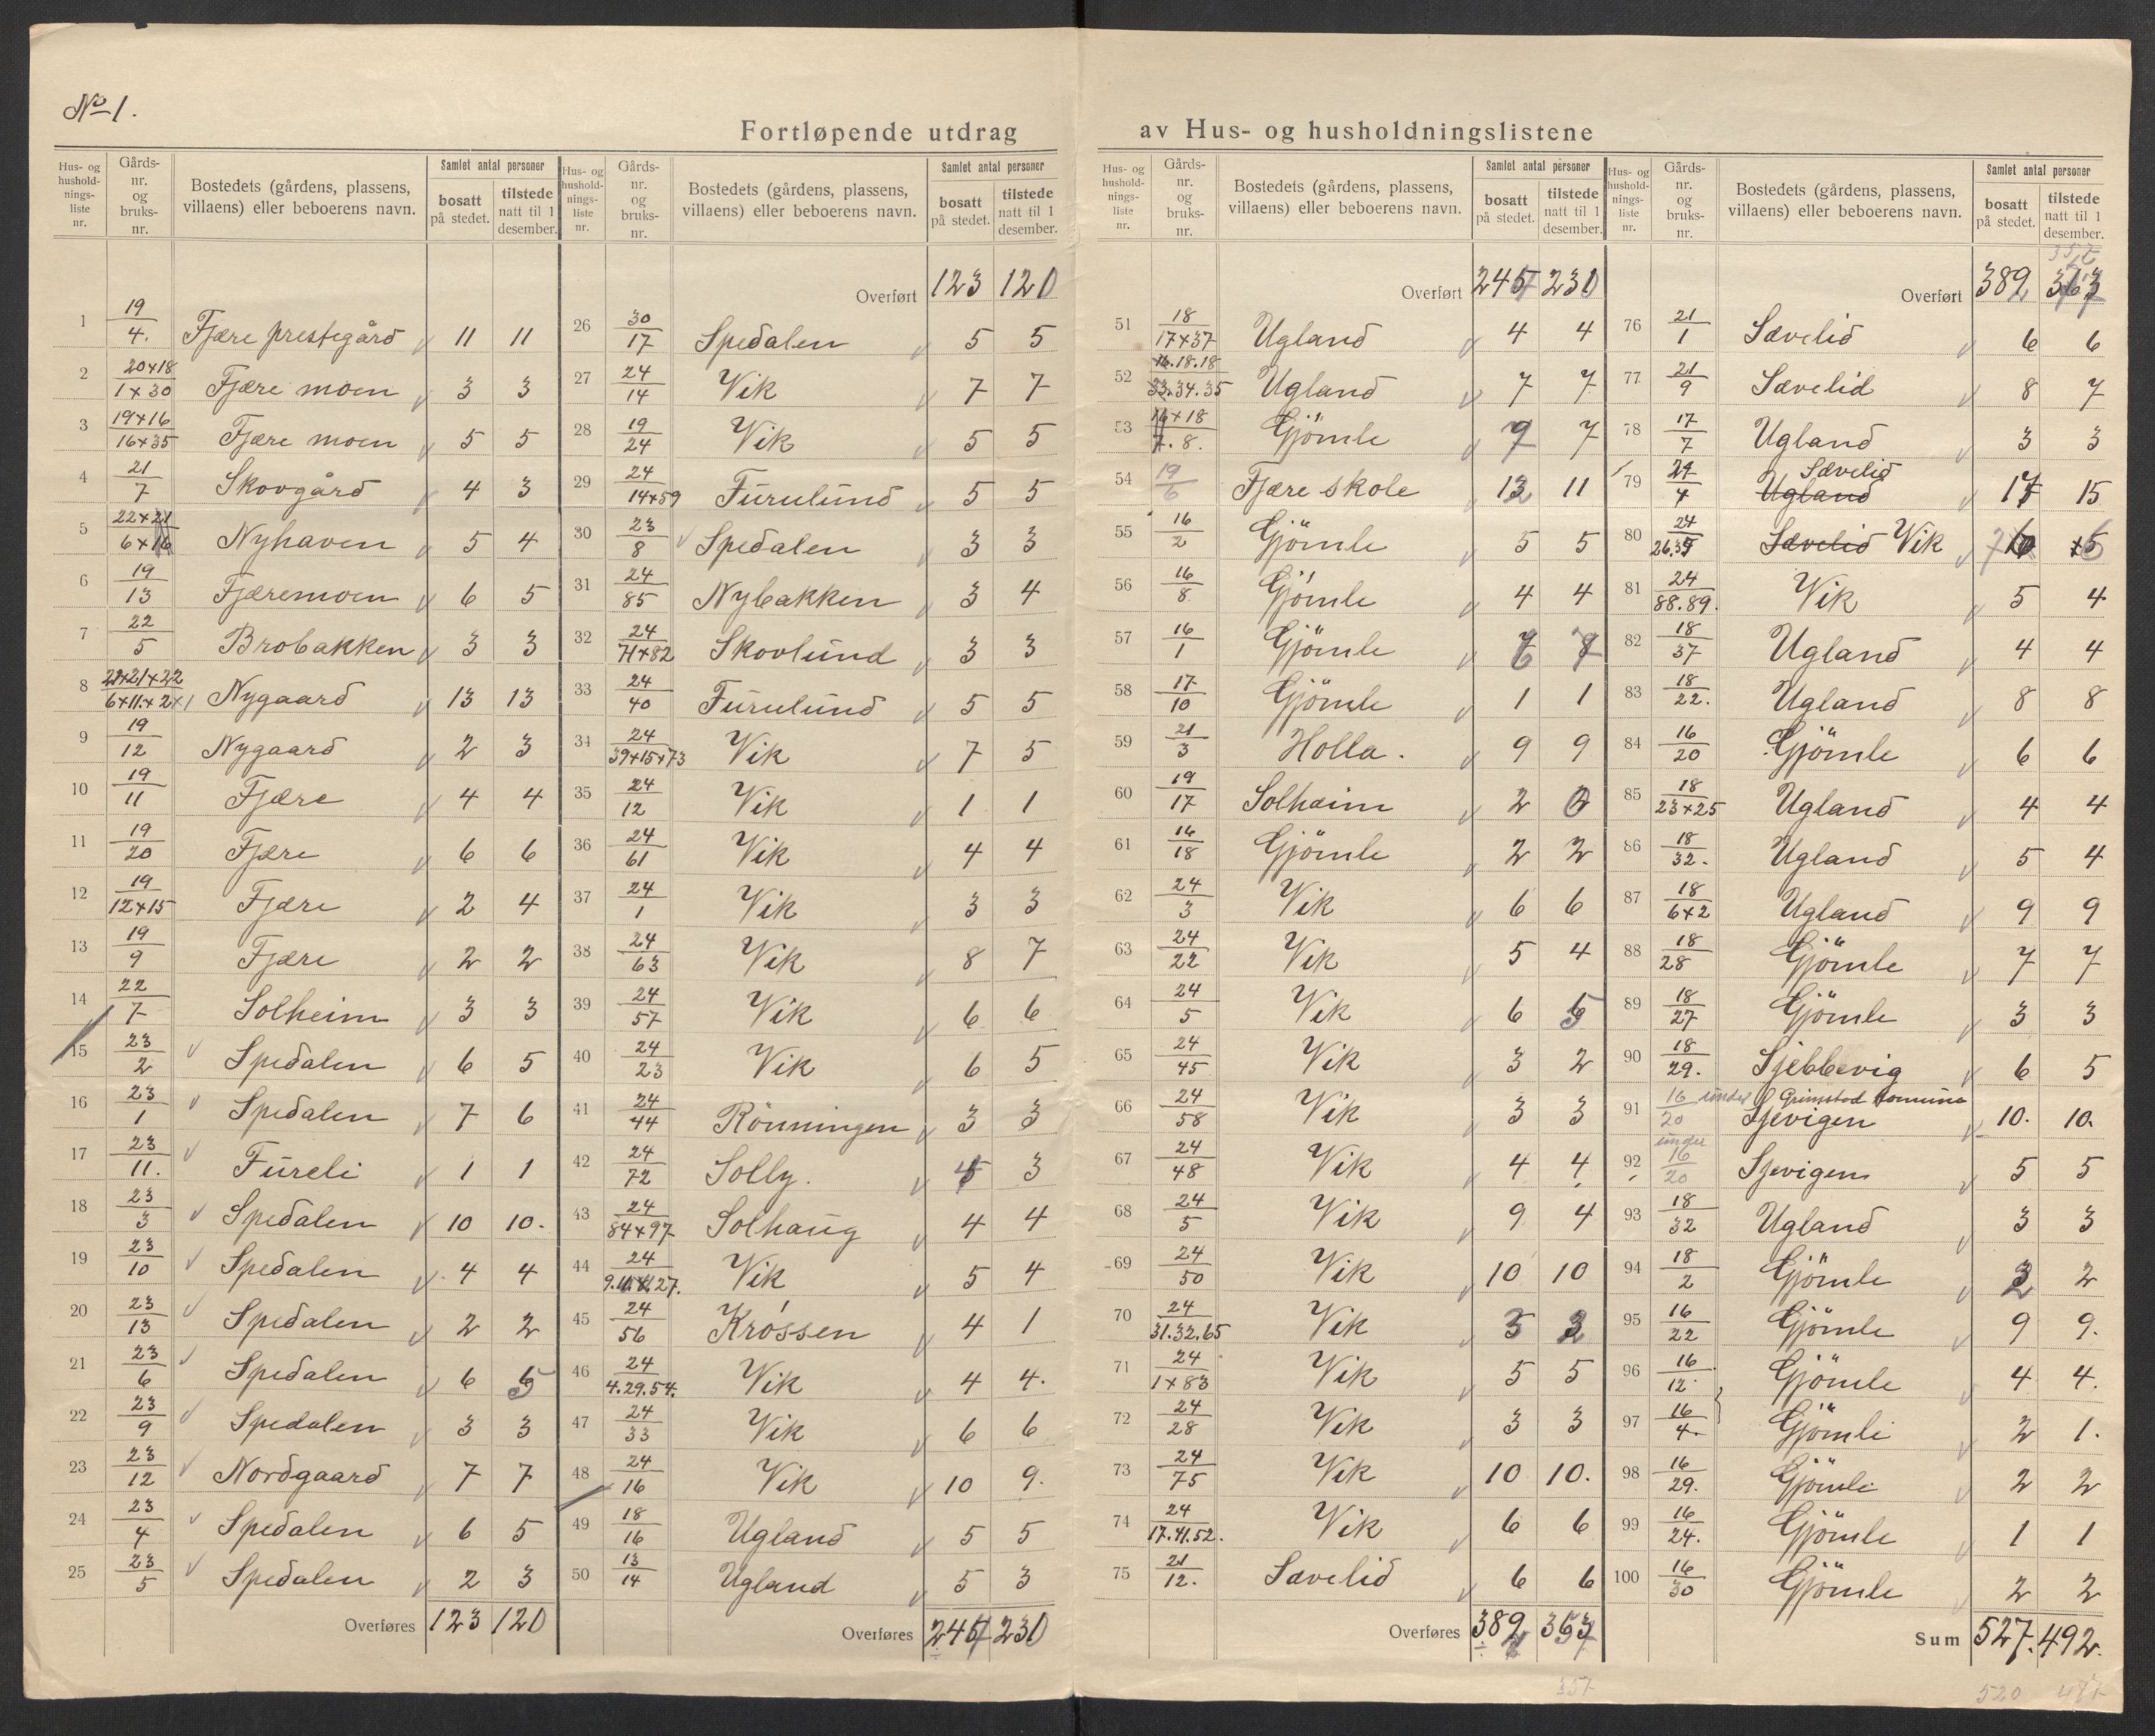 No 1.
Fortløpende utdrag av Hus- og husholdningslistene
Hus- og husholdnings-liste nr. | Gårds-nr. og bruks-nr. | Bostedets (gårdens, plassens, villaens) eller beboerens navn. | Samlet antal personer | bosatt på stedet. | tilstede natt til 1 desember.
1 19/4. Fjære prestegård 11 11
2 20+18/1+30 Fjære moen 3 3
3 19+16/16+35 Fjære moen 5 5
4 21/7 Skovgård 4 3
5 22+21/6+16 Nyhaven 5 4
6 19/13 Fjæremoen 6 5
7 22/5 Brobakken 3 3
8 Nygaard 13 13
9 19/12 Nygaard 2 3
10 19/11 Fjære 4 4
11 19/20 Fjære 6 6
12 19/12+15 Fjære 2 4
13 19/9 Fjære 2 2
14 22/7 Solheim 3 3
15 23/2 Spedalen 6 5
16 23/1 Spedalen 7 6
17 23/11. Fureli 1 1
18 23/3 Spedalen 10 10.
19 23/10 Spedalen 4 4
20 23/13 Spedalen 2 2
21 23/6 Spedalen 6 5
22 23/9 Spedalen 3 3
23 23/12 Nordgaard 7 7
24 23/4 Spedalen 6 5
25 23/5 Spedalen 2 3
Overføres 123 120
Hus- og husholdnings-liste nr. | Gårds-nr. og bruks-nr. | Bostedets (gårdens, plassens, villaens) eller beboerens navn. | Samlet antal personer | bosatt på stedet. | tilstede natt til 1 desember.
Overført 123 120
26 30/17 Spedalen 5 5
27 24/14 Vik 7 7
28 19/24 Vik 5 5
29 24/14+59 Furulund 5 5
30 23/8 Spedalen 3 3
31 24/85 Nybakken 3 4
32 24/71+82 Skovlund 3 3
33 24/40 Furulund 5 5
34 24/39+15+73 Vik 7 5
35 24/12 Vik 1 1
36 24/61 Vik 4 4
37 24/1 Vik 3 3
38 24/63 Vik 8 7
39 24/57 Vik 6 6
40 24/23 Vik 6 5
41 24/44 Rönningen 3 3
42 24/72 Solly. 3
43 24/84+97 Solhaug 4 4
44 24 Vik 5 4
45 24/56 Króssen 4 1
46 24/4.29.54. Vik 4 4.
47 24/33 Vik 6 6
48 24/16 Vik 10 9.
49 18/16 Ugland 5 5
50 13/14 Ugland 5 3
Overføres 230
Hus- og husholdnings-liste nr. | Gårds-nr. og bruks-nr. | Bostedets (gårdens, plassens, villaens) eller beboerens navn. | Samlet antal personer | bosatt på stedet. | tilstede natt til 1 desember.
Overført 230
51 18/17+37 Ugland 4 4
52 16.18.18/33.34.35 Ugland 7 7
53 16+18/7.8. Gjömle 7
54 19/6 Fjære skole 11
55 16/2 Gjömle 5 5
56 16/8 Gjömle 4 4
57 16/1 Gjömle
58 17/10 Gjömle 1 1
59 21/3 Holla. 9 9
60 19/17 Solheim 2
61 16/18 Gjömle 2 2
62 24/3 Vik 6 6
63 24/22 Vik 5 4
64 24/5 Vik 6 5
65 24/45 Vik 3 2
66 24/58 Vik 3 3
67 24/48 Vik 4 4
68 24/5 Vik 9 4
69 24/50 Vik 10 10
70 24/31.32.65 Vik
71 24/1+83 Vik 5 5
72 24/28 Vik 3 3
73 24/75 Vik 10 10.
74 24/17.41.52. Vik 6 6
75 21/12. Sævelid 6 6
Overføres 389 363
357
Hus- og husholdnings-liste nr. | Gårds-nr. og bruks-nr. | Bostedets (gårdens, plassens, villaens) eller beboerens navn. | Samlet antal personer | bosatt på stedet. | tilstede natt til 1 desember.
357
Overført 389 363
76 21/1 Sævelid 6 6
77 21/9 Sævelid 8 7
78 17/7 Ugland 3 3
79 4 Ugland Sævelid 15
80 24 Sævelid Vik
81 24/88.89. Vik 5 4
82 18/37 Ugland 4 4
83 18/22. Ugland 8 8
84 16/20 Gjömle 6 6
85 18/23+25 Ugland 4 4
86 18/32. Ugland 5 4
87 18/6+2 Ugland 9 9
88 18/28 Gjömle 7 7
89 18/27 Gjömle 3 3
90 18/29. Sjebbevig 6 5
91 16/20 under Grimstad komune Sjevigen 10. 10.
92 under 16/20 Sjevigen 5 5
93 18/32 Ugland 3 3
94 18/2 Gjömle 2
95 16/22 Gjömle 9 9.
96 16/12. Gjömle 4 4.
97 16/4. Gjömle 2 1.
98 16/29. Gjömle 2 2
99 16/24. Gjömle 1 1
100 16/30 Gjömle 2 2
Sum 527. 492.
520 487